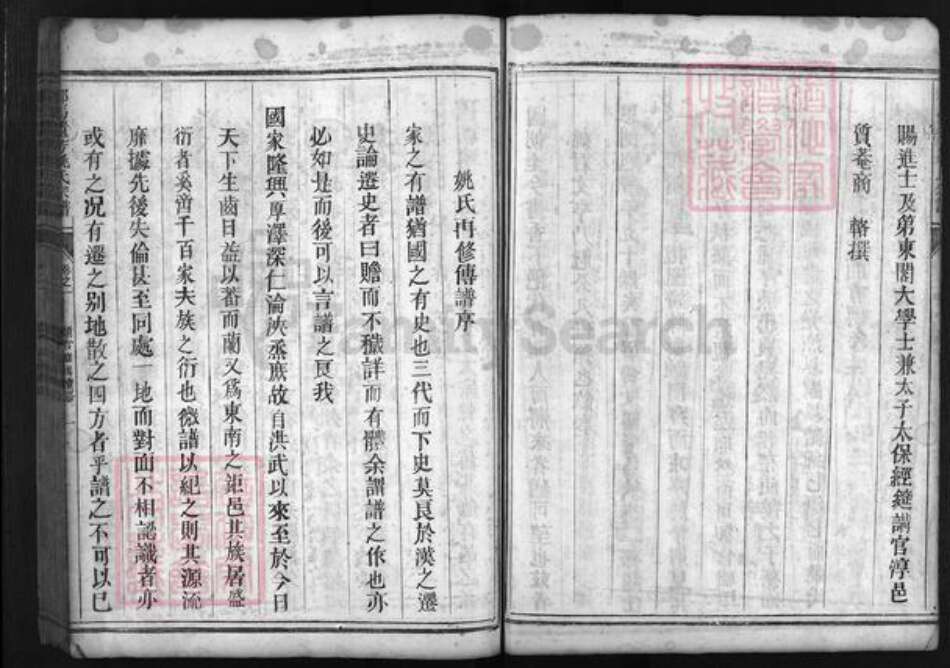 賜進士及第東閣大學士兼太子太保經筵講官淳邑
質菴商　輅撰
姚氏再修傳譜序
家之有譜猶國之有史也三代而下史莫良於漢之遷
史論遷史者曰贍而不穢詳而有體余謂譜之作也亦
必如是而後可以言譜之良我
國家隆興厚澤深仁淪浹烝庶故自洪武以來至於今日
天下生齒日益以蕃而蘭又為東南之鉅邑其族居盛
衍者奚啻千百家夫族之衍也微譜以紀之則其源流
靡據先後失倫甚至同處一地而對面不相認識者亦
或有之况有遷之别地散之四方者乎譜之不可以已
FamilySearch